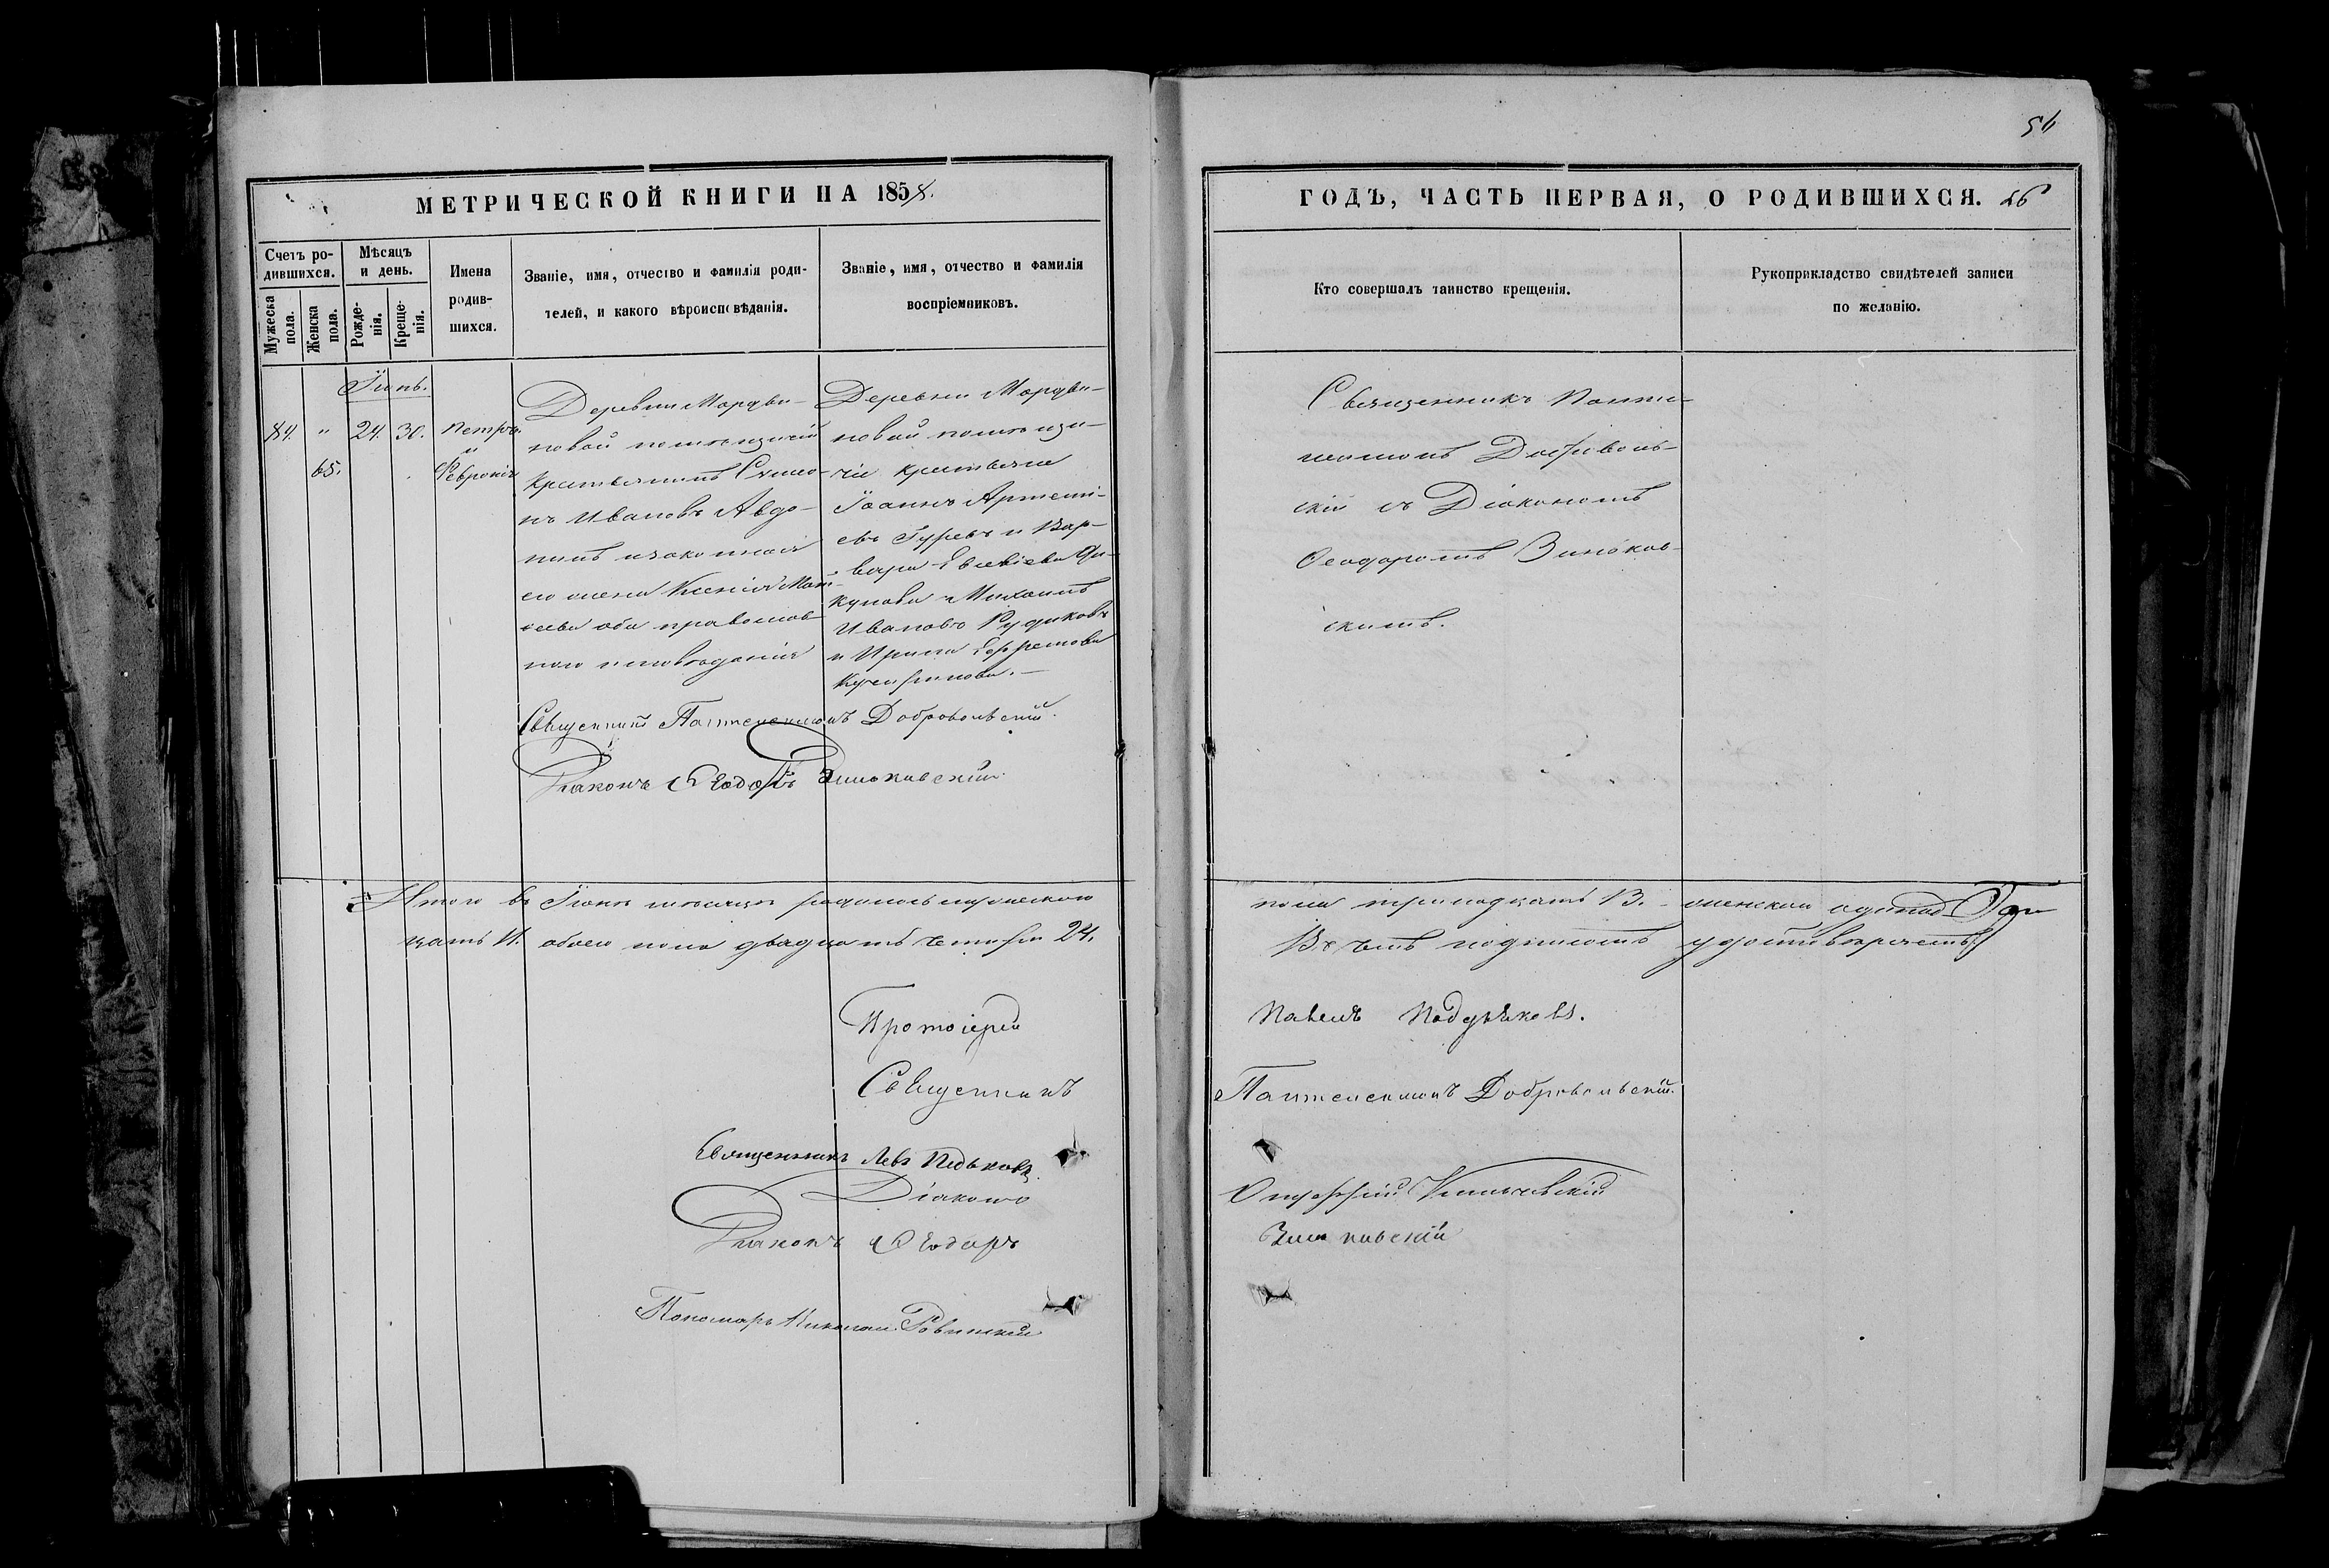 МЕТРИЧЕСКОЙ КНИГИ НА 1858.
Счетъ ро-
дившихся.
Мужеска
пола.
Женска
пола.
Мѣсяцъ
и день.
Рожде-
нія.
Креще-
нія.
Имена
родив-
шихся.
Званіе, имя, отчество и фамилія роди-
телей, и какого вѣроисповѣданія.
Званіе, имя, отчество и фамилія
воспріемниковъ.
Іюнь.
84. " 24. 30. Петръ
и
65. Февронія
Деревни Мордви-
новой помѣщичій
крестьянинъ Симео-
нъ Ивановъ Авдо-
нинъ и законная
его жена Ксенія
оба православ
наго исповѣданія
Деревни Мордви-
новой помѣщи-
чіи крестьяне
Іоаннъ Артемі-
евъ Гуревъ и Вар-
вара
Михаилъ
Ивановъ Рудиковъ
и Ирина Ефремова
Священникъ Пантелеимонъ Добровольскій.
Діаконъ Ѳеодоръ Зиньковскій.
Итого въ Іюнѣ мѣсяцѣ родилось мужескаго
цать 11. обоего пола двадцать четыре 24.
Протоіерей
Священникъ
Священникъ Левъ Педьковъ
Діаконъ
Діаконъ Ѳеодоръ
Пономарь Николай Ровинскій
56
ГОДЪ, ЧАСТЬ ПЕРВАЯ, О РОДИВШИХСЯ. 26
Кто совершалъ таинство крещенія.
Рукоприкладство свидѣтелей записи
по желанію.
Священникъ Панте-
леимонъ Доброволь-
скій съ Діакономъ
Ѳеодоромъ Зиньков-
скимъ.
пола тринадцать 13. женскаго одинад
Въ чемъ подписомъ удостовѣряемъ
Павелъ
Пантелеимонъ Добровольскій.
Онуфрій
Зиньковскій